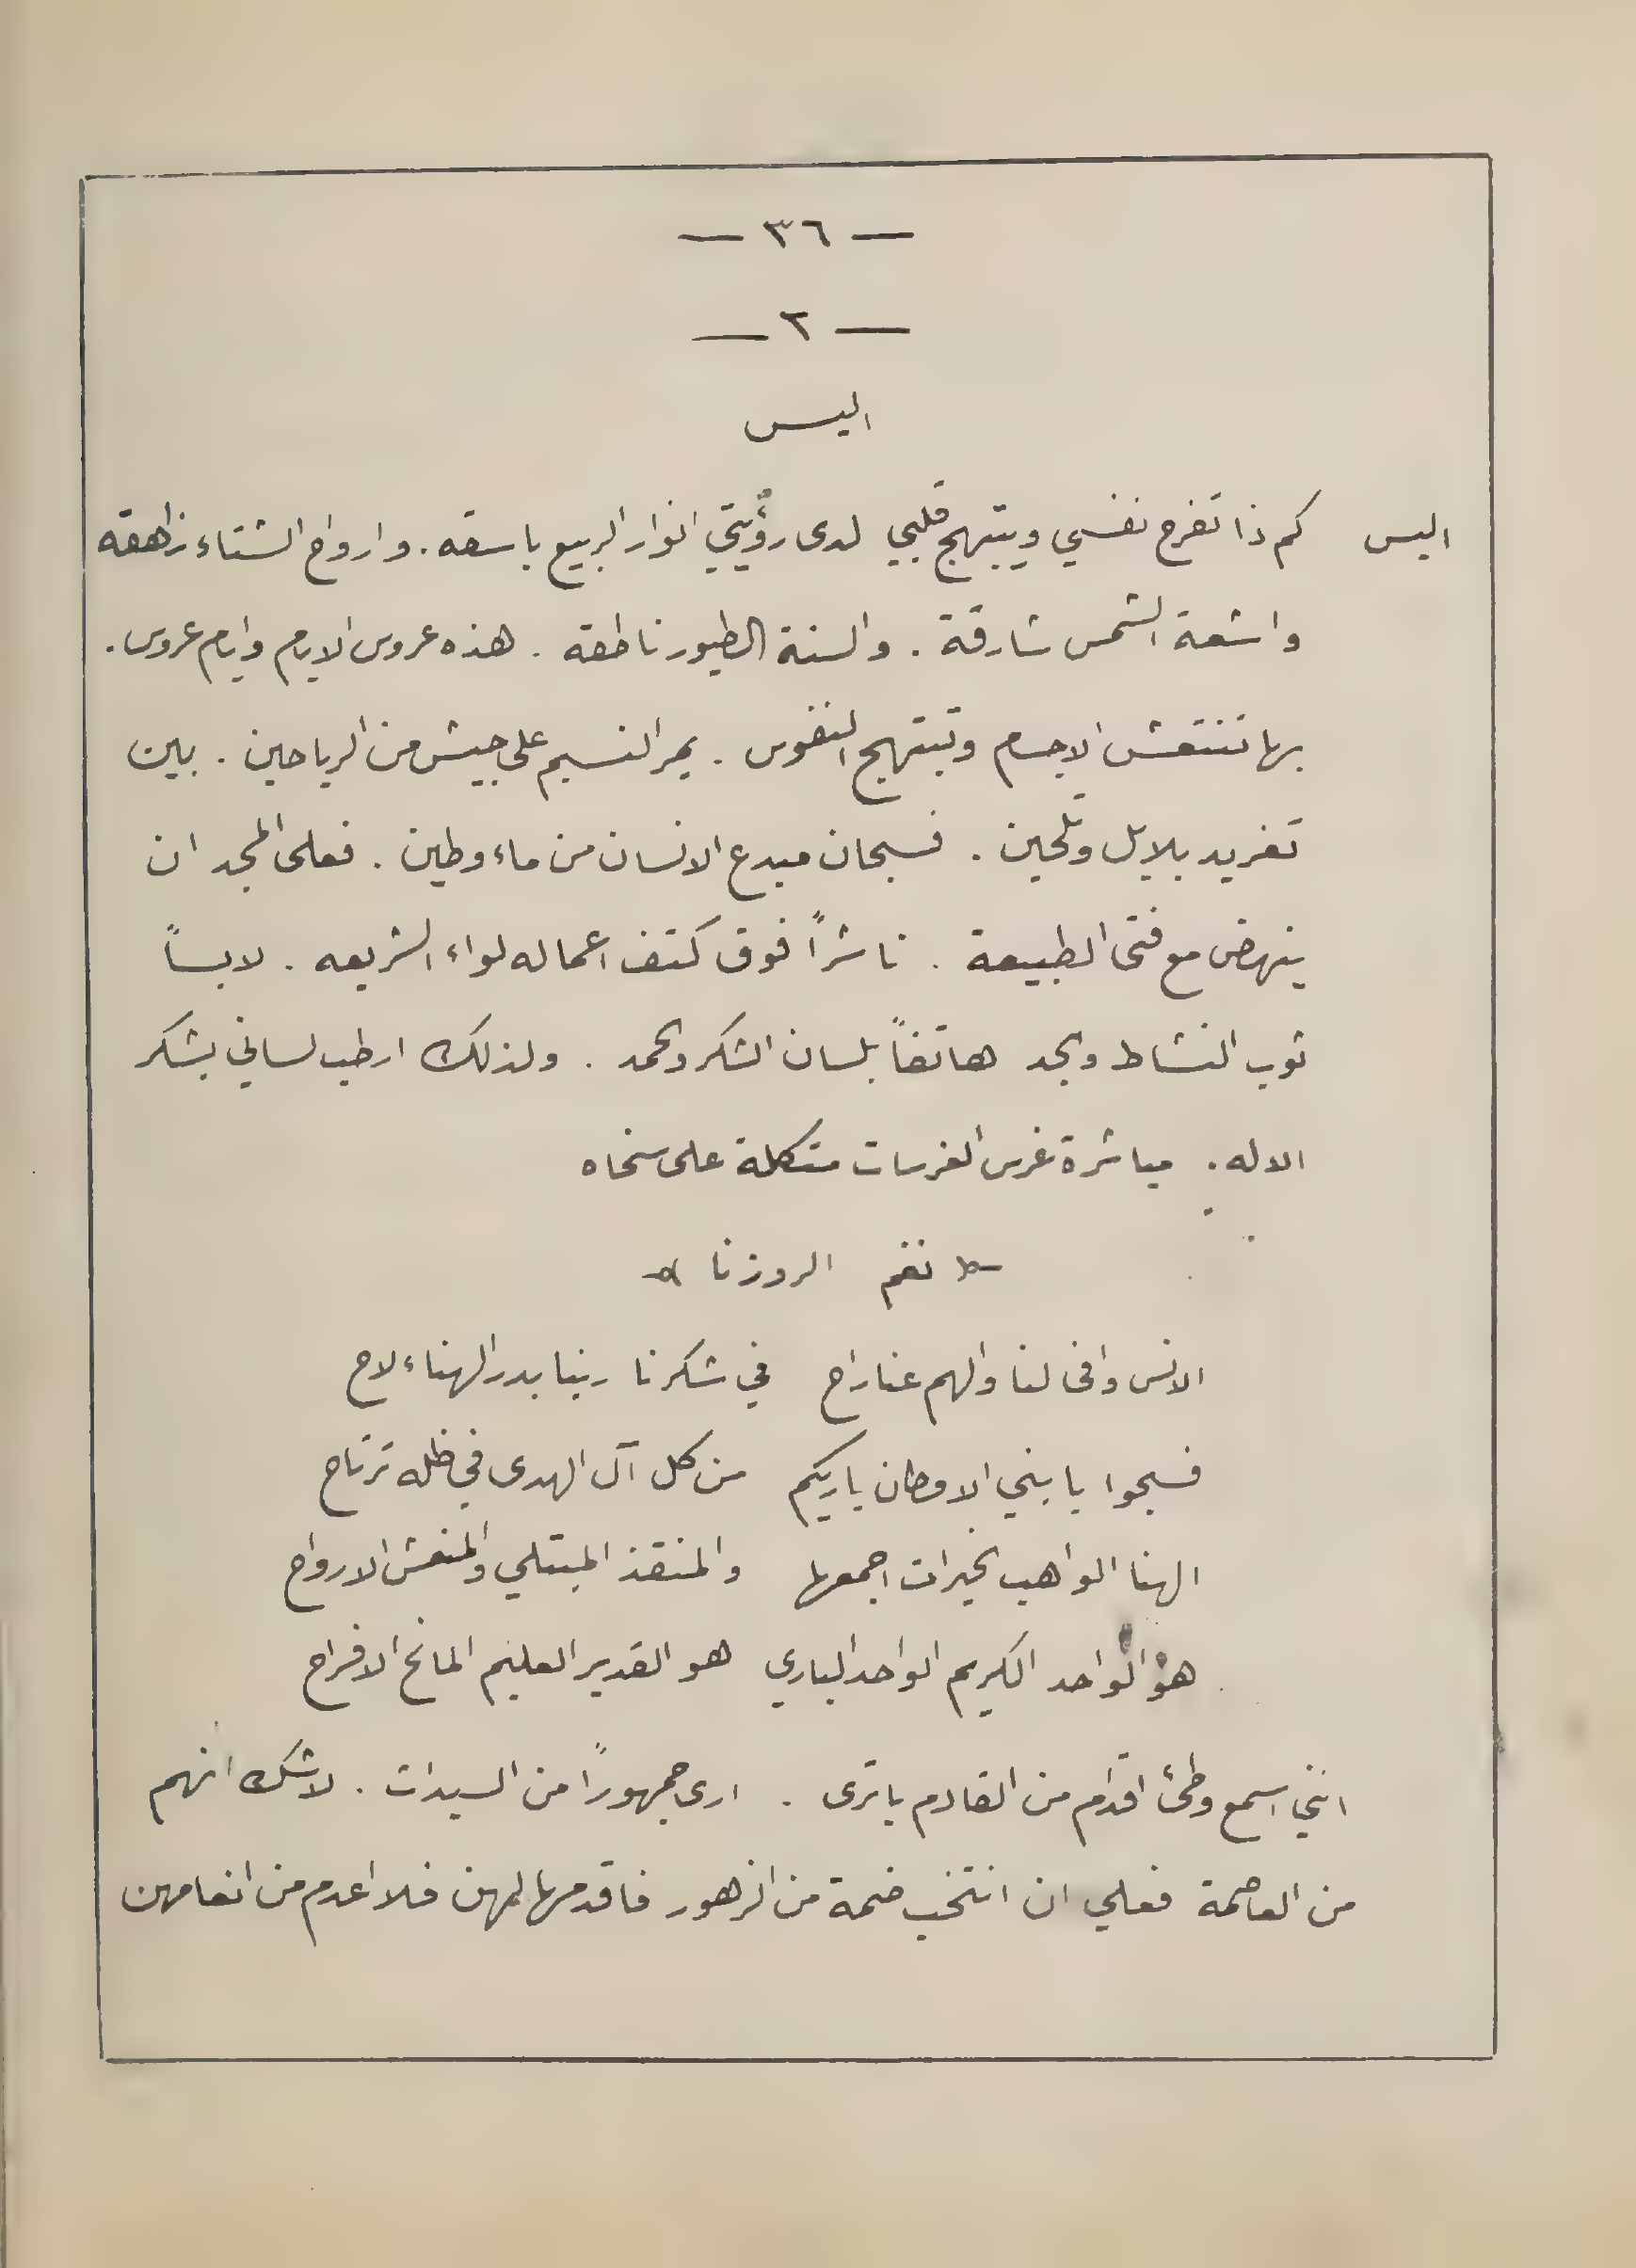 — ٣٦ —
— ٢ —
اليس
اليس كم ذا تفرح نفسي ويبتهج قلبي لدى رؤيتي انوار الربيع باسقه . وارواح الشتاء زاهقه
واشعة الشمس شارقة . والسنة الطيور ناطقه . هذه عروس الايام وايام عروس .
بها تنتعش الاجسام وتبتهج النفوس . يمر النسيم على جيش من الرياحين . بين
تغريد بلابل وتلحين . فسبحان مبدع الانسان من ماء وطين . فعلى المجد ان
ينهض مع فتى الطبيعة . ناشراً فوق كتف اعماله لواء الشريعه . لابساً
ثوب النشاط والجد هاتفاً بلسان الشكر والحمد . ولذلك ارطب لساني بشكر
الاله . مباشرة غرس الغرسات متكلة على سخاه
نغم الروزنا
الانس وافى لنا والهم عنا راح في شكرنا ربنا بدر الهناء لاح
فسبحوا يا بني الاوطان باريكم من كل آل الهدى في ظله ترتاح
الهنا الواهب الخيرات اجمعها والمنقذ المبتلي والمنعش الارواح
هو الواحد الكريم الواحد الباري هو القدير العليم المانح الافراح
انني اسمع وطئ اقدام من القادم يا ترى . ارى جمهوراً من السيدات . لا شك انهم
من العاصمة فعلي ان انتخب ضمة من الزهور فاقدمها لهن فلا اعدم من انعامهن